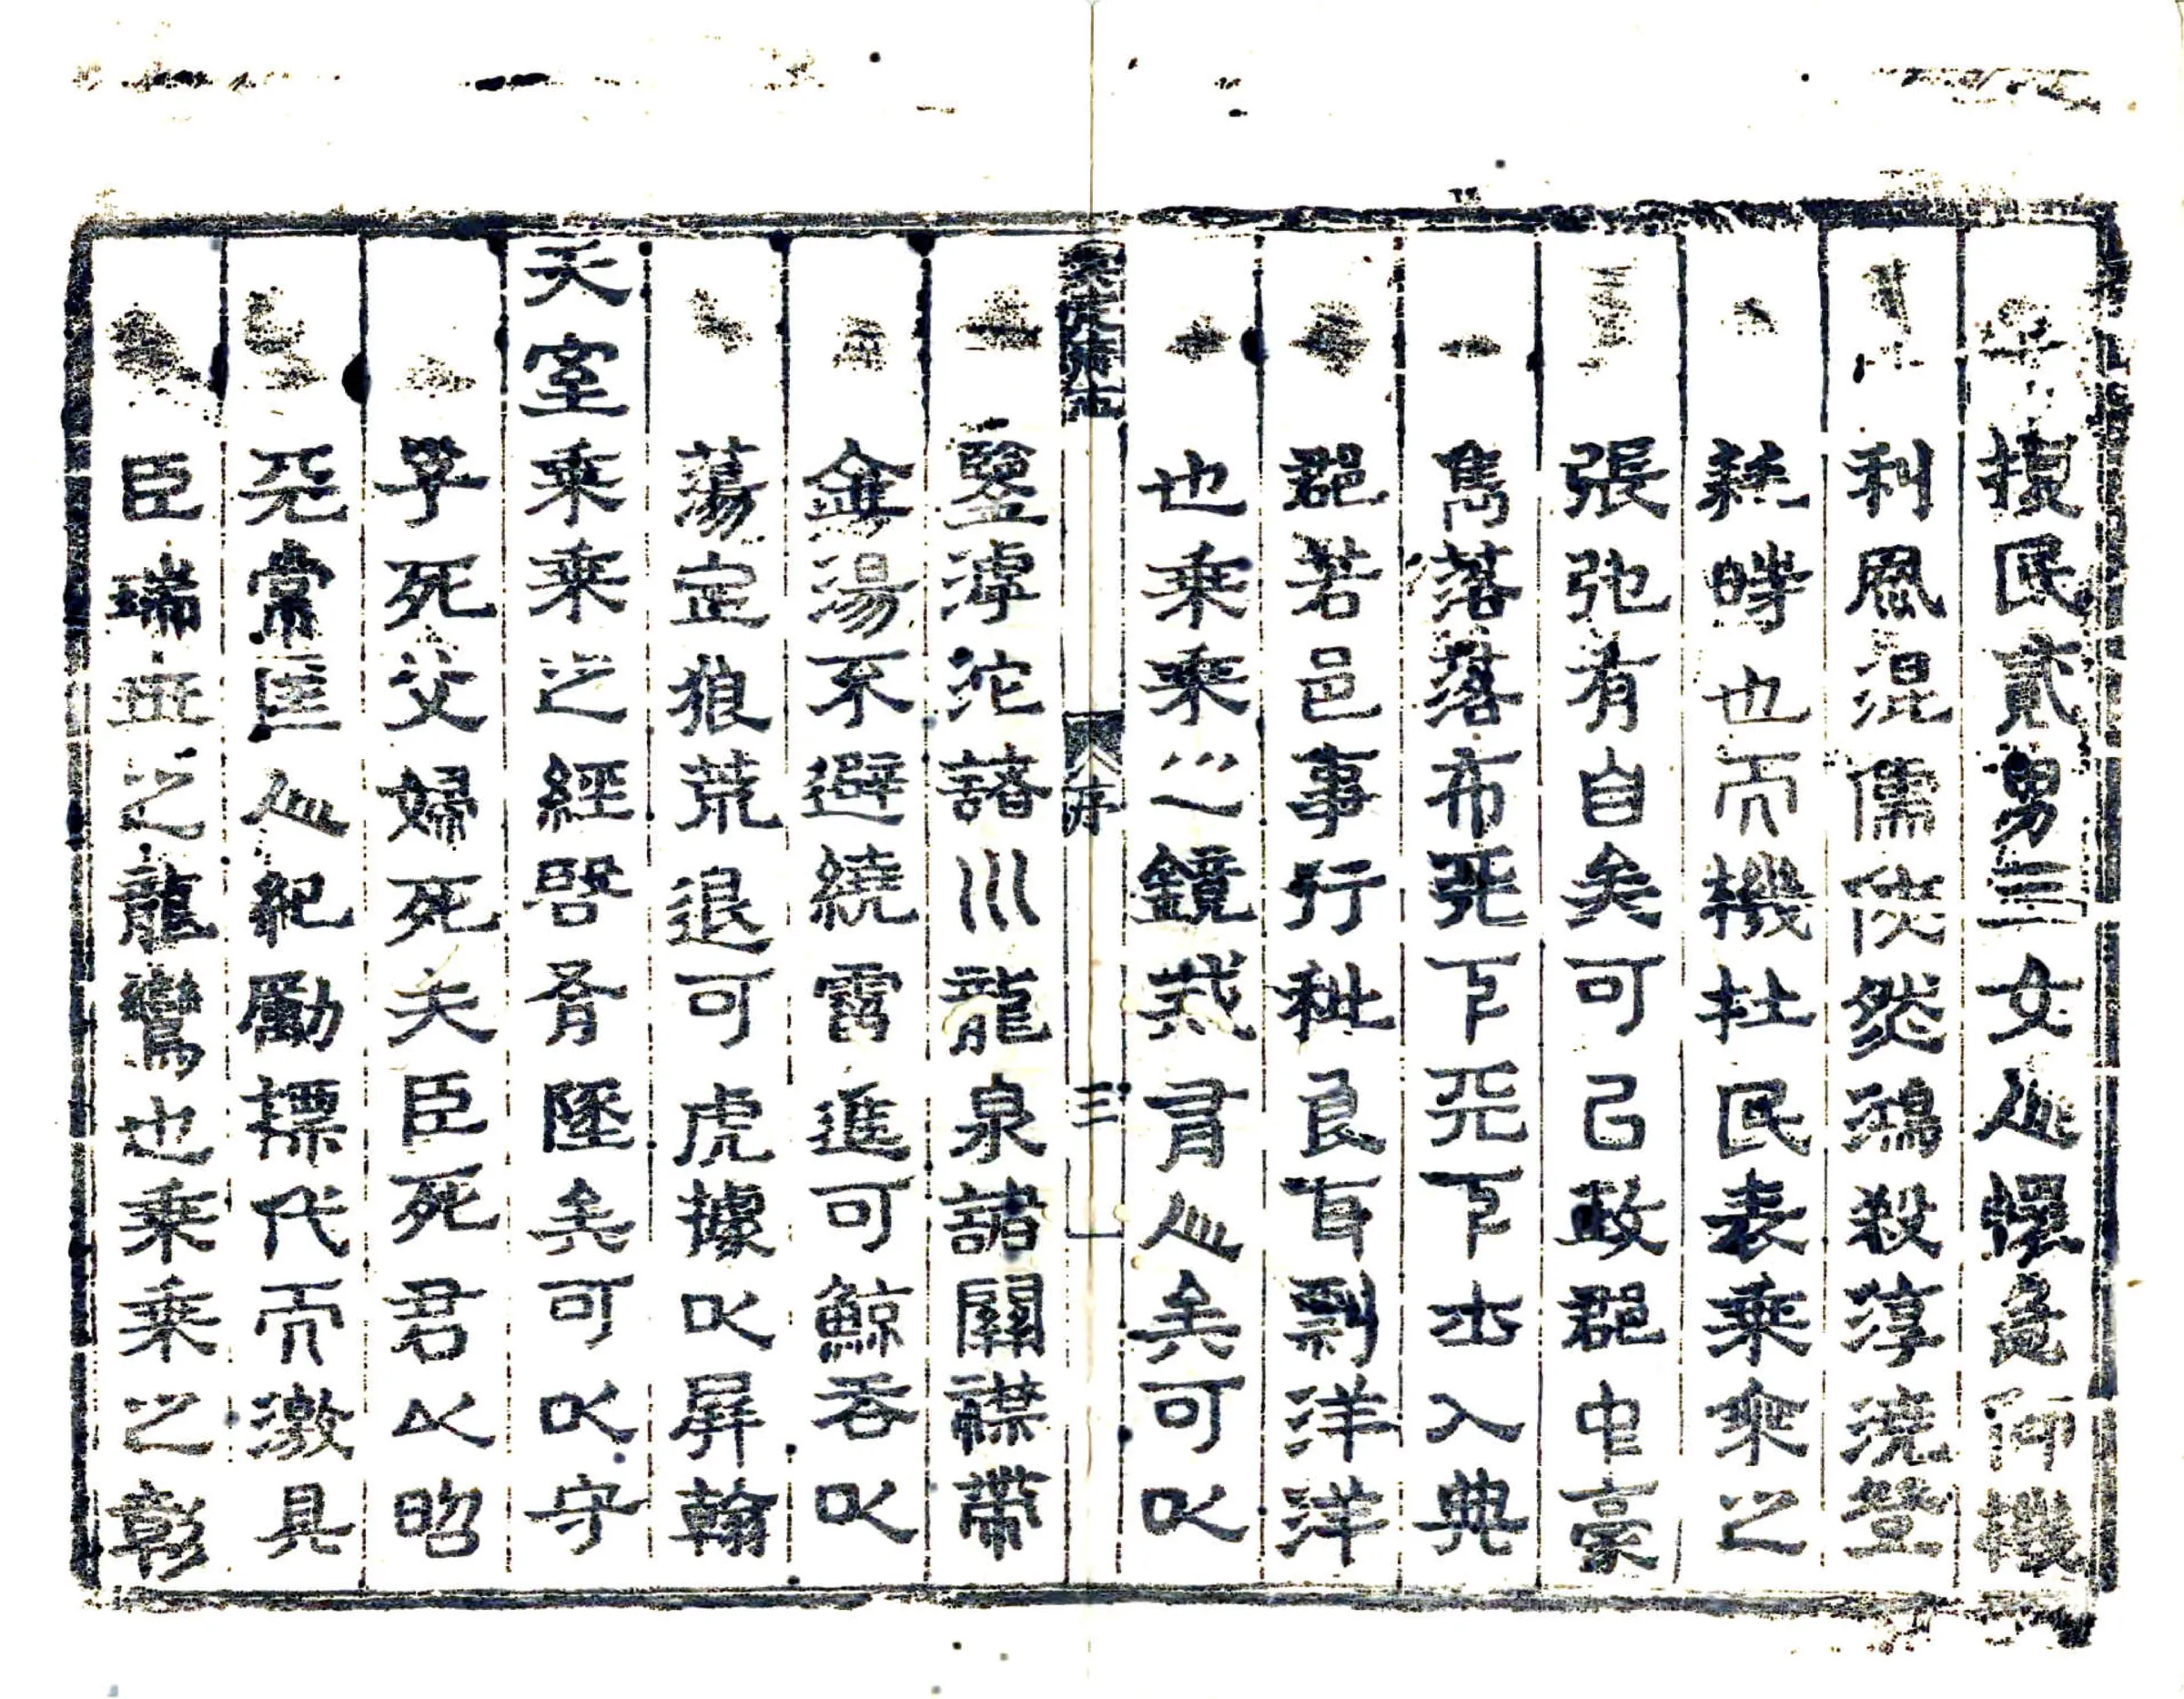 民貳男三女懷仰機
利風混儒俠然鴻殺淳澆登
耗時也而機杜民表乘乘之
張弛有自矣可已政郡中豪
雋落落布天下天下出入典
郡若邑事行秕良剽洋洋
也乘乘之鏡有矣可以
序
三
鑿滹沱諸川龍泉諸關襟帶
金湯不避繞雷進可鯨吞以
蕩定狼荒退可虎據以屏翰
天室乘乘之經啓胥墜矣可以守
子死父婦死夫臣死君以昭
天常匡紀勵標代而激具
臣瑞世之龍鸞也乘乘之彰